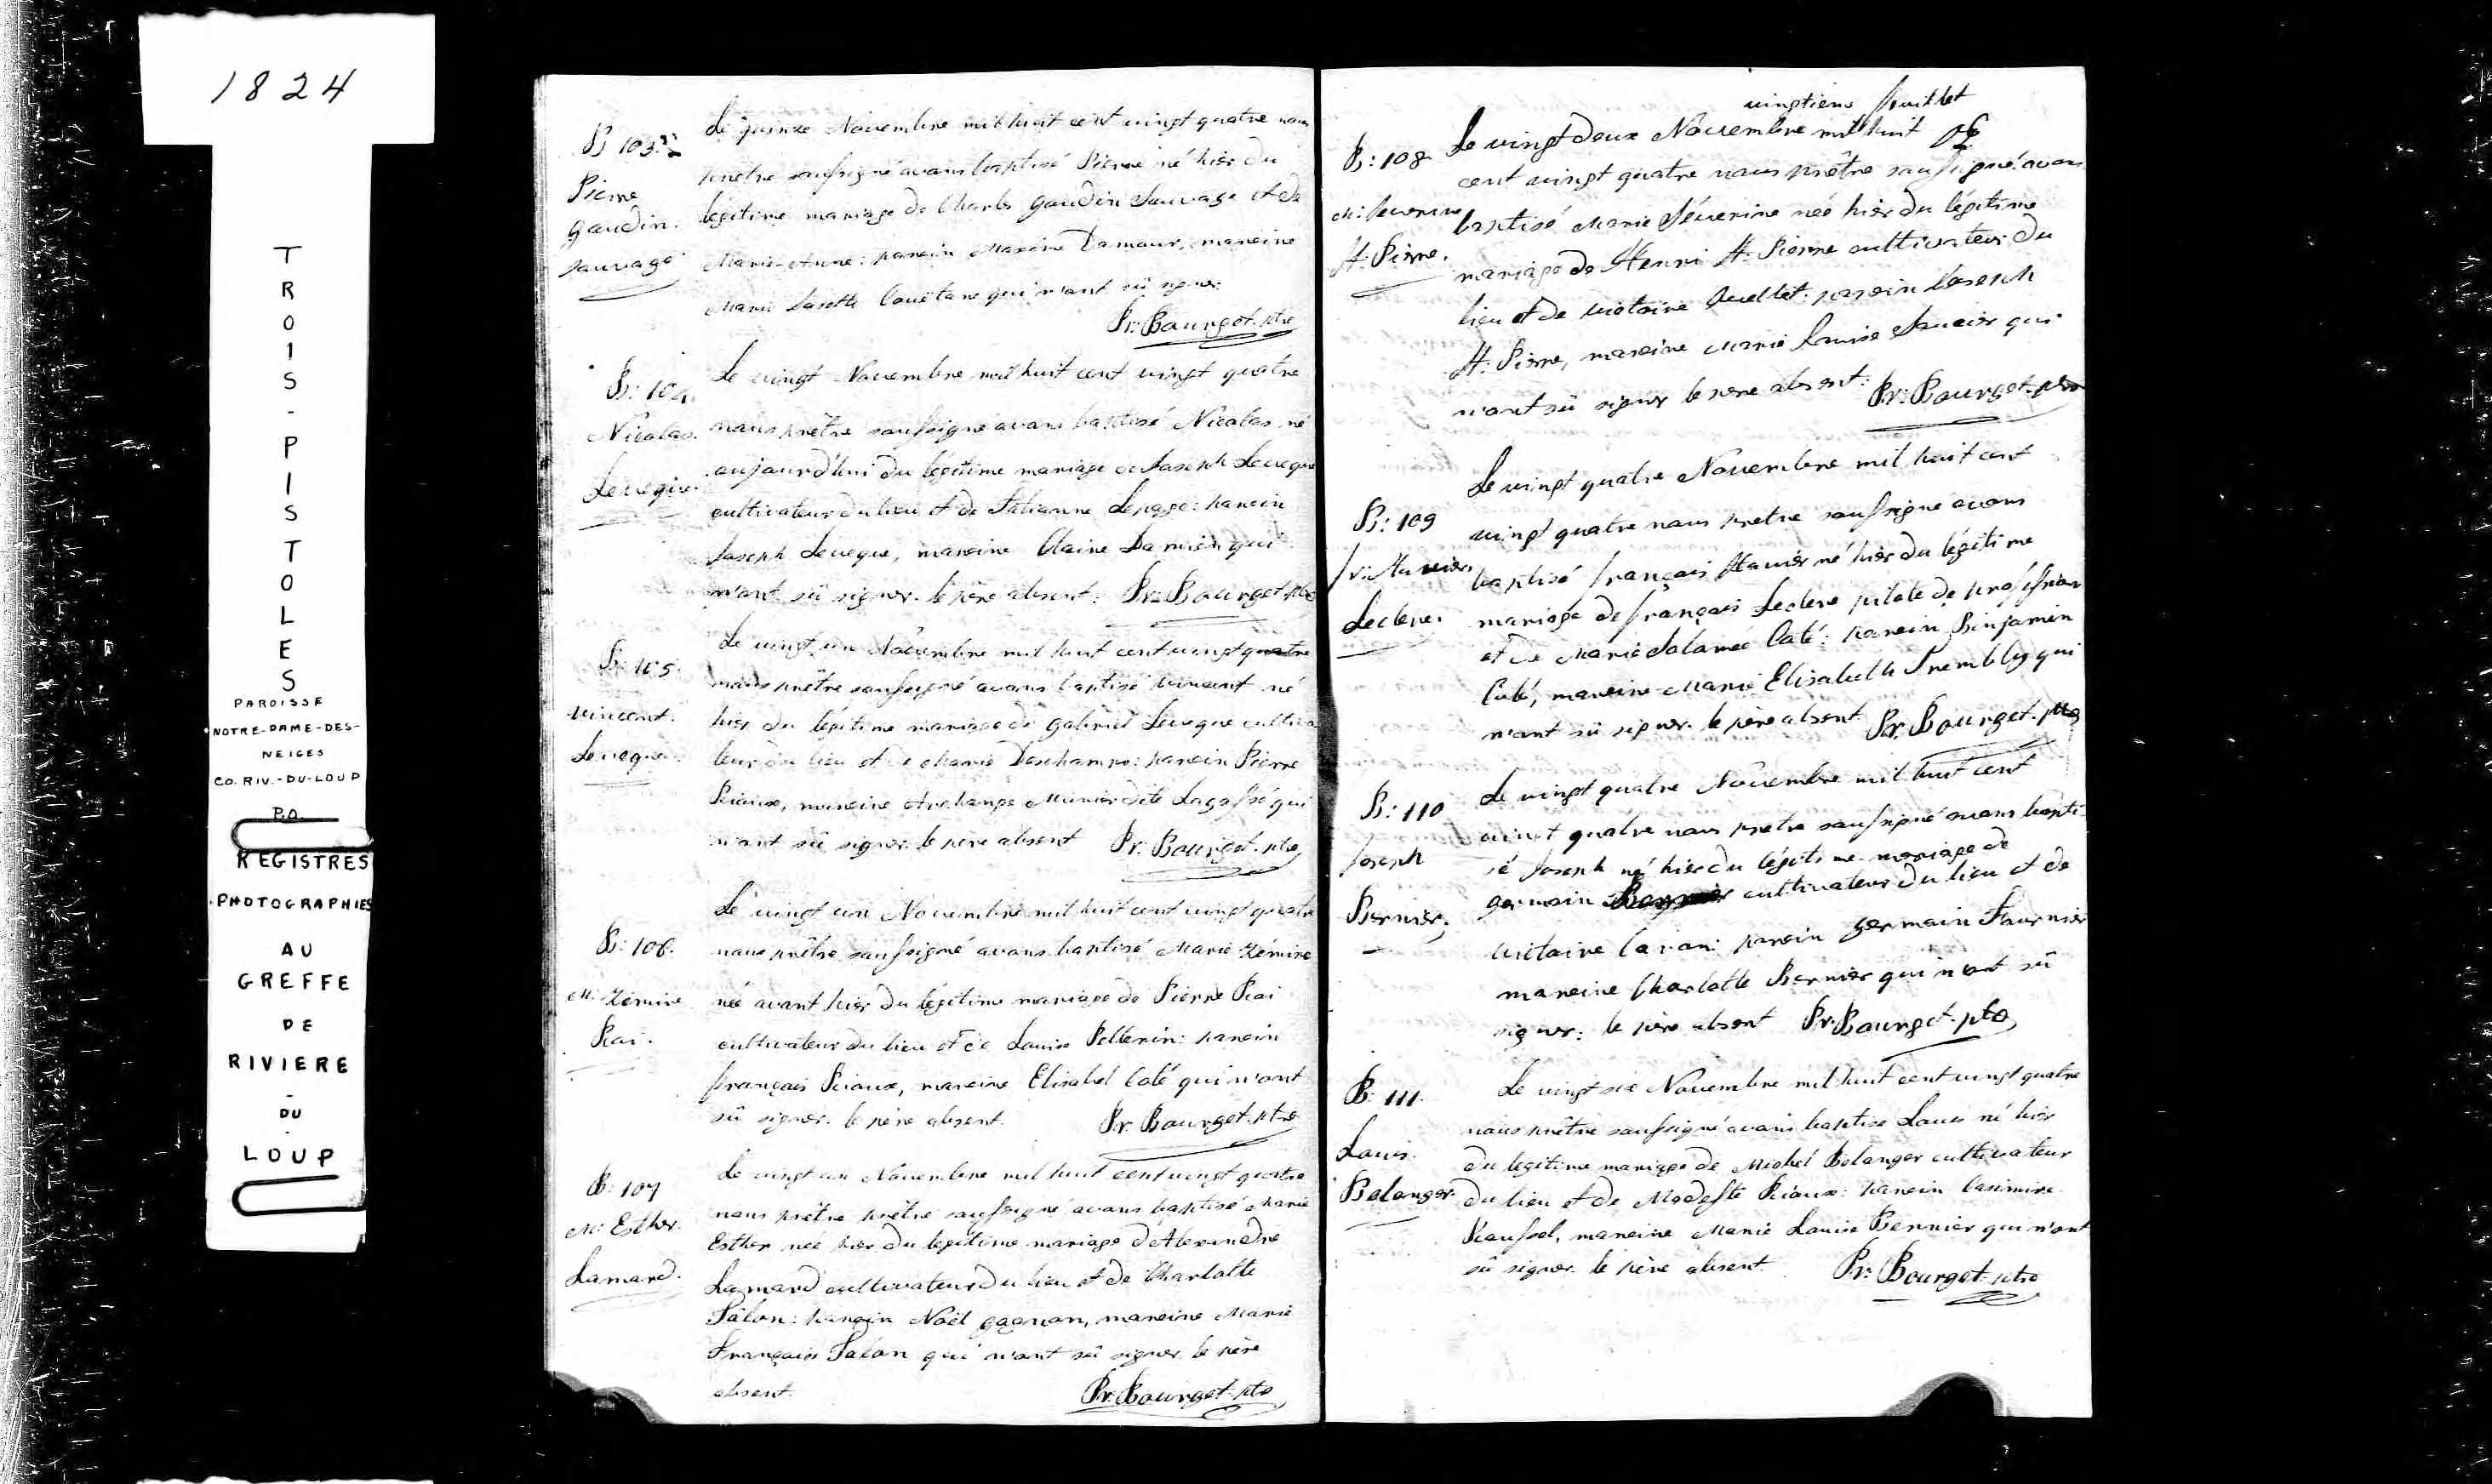 1824
TROIS-PISTOLES
PAROISSE
NOTRE-DAME-DES-
NEIGES
CO. RIV.-DU-LOUP
P.Q.
REGISTRES
PHOTOGRAPHIES
AU
GREFFE
DE
RIVIERE
-
DU
-
LOUP
B 103.
Pierre
Gaudin.
sauvage
Le quinze Novembre mil huit cent vingt quatre nous
prêtre soussigné avons baptisé Pierre né hier du
légitime mariage de Charles Gaudin Sauvage et de
Marie-Anne: parein Maxime Damour, mareine
Marie qui n'ont sû signer
Pr: Bourget. ptre
B: 104
Nicolas.
Leveque.
Le vingt Novembre mil huit cent vingt quatre
nous prêtre soussigné avons baptisé Nicolas né
aujourd'hui du légitime mariage de Joseph Leveque
cultivateur du lieu et de Lepage: parein
Joseph Leveque, mareine Claire Damien qui
n'ont sû signer. le père absent: Pr: Bourget ptre
B: 105
Vincent.
Leveque.
Le vingt un Novembre mil huit cent vingt quatre
nous prêtre soussigné avons baptisé Vincent né
hier du légitime mariage de Gabriel Leveque cultiva
teur du lieu et de Marie Deschamps: parein Pierre
Rioux, mareine Archange Munier dite Lagassé qui
n'ont sû signer. le père absent Pr: Bourget. ptre
B: 106.
M: Zémire
Roi.
Le vingt un Novembre mil huit cent vingt quatre
nous prêtre soussigné avons baptisé Marie Zémire
née avant hier du légitime mariage de Pierre Roi
cultivateur du lieu et de Louise Pellerin: parein
françois Rioux, mareine Elisabet Coté qui n'ont
sû signer. le père absent. Pr. Bourget. ptre
B: 107
M: Esther.
Lamard.
Le vingt un Novembre mil huit cent vingt quatre
nous prêtre prêtre soussigné avons baptisé Marie
Esther née hier du légitime mariage d'Alexandre
Lamard cultivateur du lieu et de Charlotte
Talon: parein Noël Gagnon, mareine Marie
Françoise Talon qui n'ont sû signer le père
absent. Pr: Bourget. ptre
vingtiem feuillet
B: 108
M: Severine
St: Pierre.
Le vingt deux Novembre mil huit
cent vingt quatre nous prêtre soussigné avons
baptisé Marie Séverine née hier du légitime
mariage de Henri St: Pierre cultivateur du
lieu et de Victoire Ouellet: parein Joseph
St: Pierre, mareine Marie Louise Saucier qui
n'ont sû signer le père absent: Pr: Bourget. ptre
B: 109
fr: Xavier
Leclerc.
Le vingt quatre Novembre mil huit cent
vingt quatre nous prêtre soussigné avons
baptisé françois Xavier né hier du légitime
mariage de françois Leclerc pilote de profession
et de Marie Salomee Coté: parein Binjamin
Coté, mareine Marie Elisabeth Trembley qui
n'ont sû signer. le père absent Pr. Bourget. ptre
B: 110
Joseph
Bernier.
Le vingt quatre Novembre mil huit cent
vingt quatre nous prêtre soussigné avons bapti
sé Joseph né hier du légitime mariage de
germain cultivateur du lieu et de
Victoire Caron: parein germain Fournier
mareine Charlotte Bernier qui n'ont sû
signer: le père absent Pr. Bourget. ptre
B: 111.
Louis.
Belanger.
Le vingt six Novembre mil huit cent vingt quatre
nous prêtre soussigné avons baptisé Louis né hier
du légitime mariage de Michel Belanger cultivateur
du lieu et de Modeste Rioux: parein Casimire
Roussel, mareine Marie Louise Bernier qui n'ont
sû signer. le père absent. Pr: Bourget. ptre